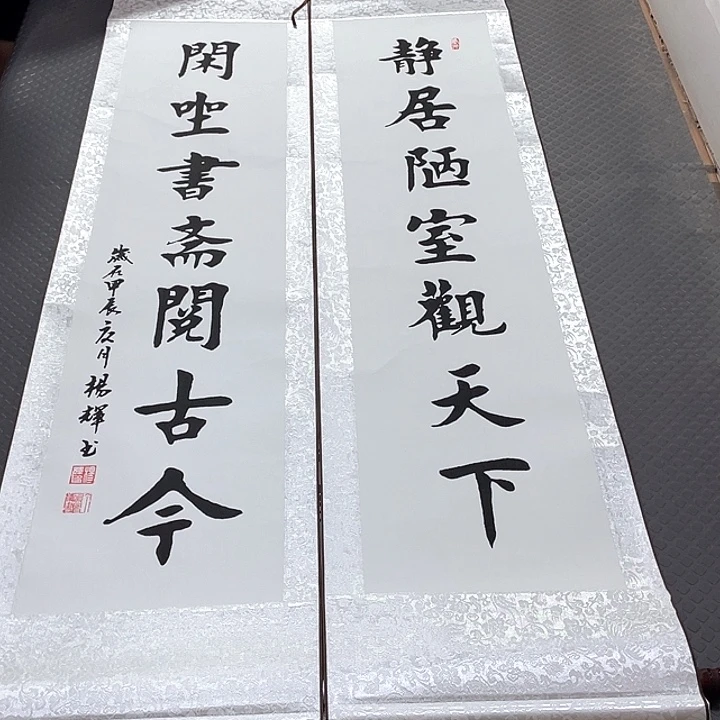 静居陋室觀天下
閑坐書斋閲古今
歲在甲辰
月楊輝书